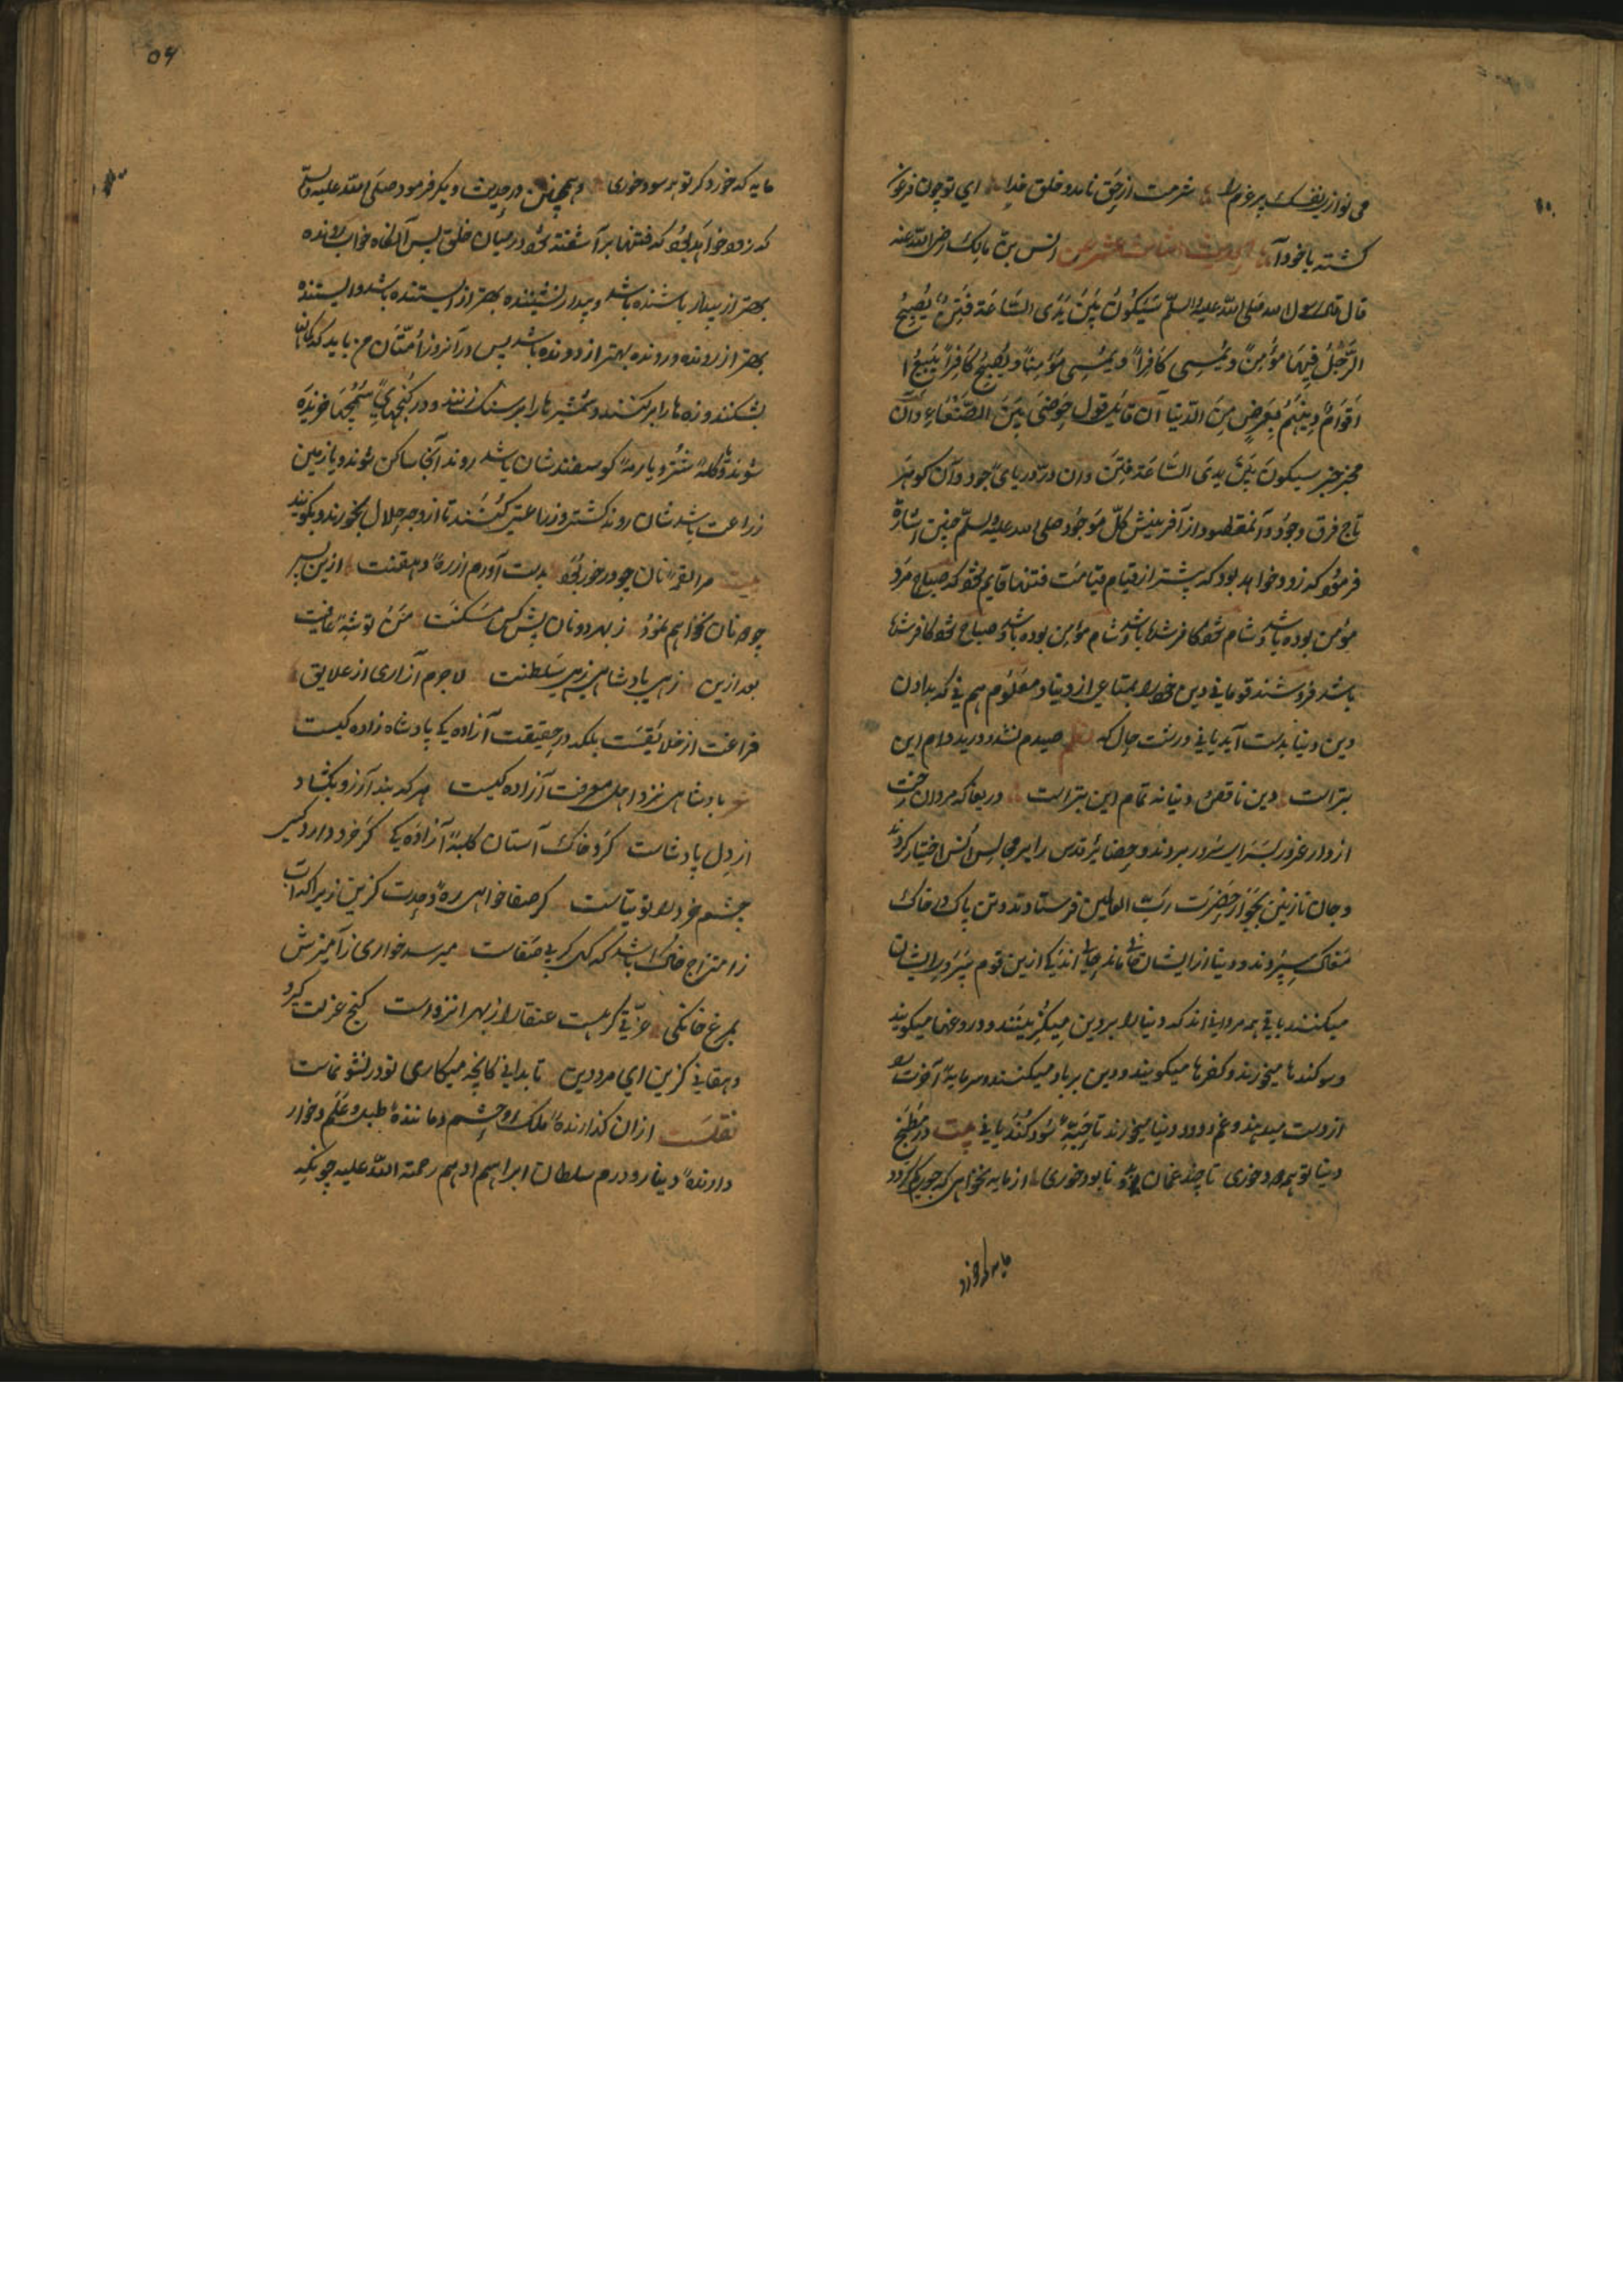 می نوازی نفسک پر غرم را شرمت از حق نامد و خلق خدا ای تو چون فرعون
کشته با خود آ الحدیث الثالث عشر عن انس بن مالک رضی الله عنه
قال قال رسول الله صلی الله علیه وسلم سَیَکُونُ بَیْنَ یَدَیِ السَّاعَةِ فِتَنٌ یُصْبِحُ
الرَّجُلُ فِیهَا مُؤْمِنًا وَیُمْسِی کَافِرًا وَیُمْسِی مُؤْمِنًا وَیُصْبِحُ کَافِرًا یَبِیعُ
أَقْوَامٌ دِینَهُمْ بِعَرَضٍ مِنَ الدُّنْیَا آن قایل قول حَوْضِی بَیْنَ الصَّنْعَاءِ وآن
مخبر خبر سیکون بین یدی السّاعة فِتَن وان درّ دریای جود وآن کوهر
تاج فرق وجود وآنمقصود از آفرینش کلّ مَوجُود صلی الله علیه وسلّم چنین اشارة
فرمود که زود خواهد بود که پیشتر از قیام قیامت فتنها قایم شود که صباح مرد
مؤمن بوده باشد وشام شود کافر شده باشد وشام مؤمن بوده باشد وصباح شود کافر شده
باشد فروشند قومانی دین خود را بمتاعی از دنیا و معلوم هم نی که بدادن
دین دنیا بدست آید یا نی ورنت حال که صیدم نشد و درید دام این
بتر است دین ناقص و دنیا نه تمام این بتر است دریغا که مردان رخت
از دار غرور بسرای سرور بردند و حضایر قدس را بر مجالس انس اختیار کردند
و جان نازنین بجوار حضرت ربّ العالمین فرستادند و تن پاک در خاک
مغاک سپردند و دنیا از ایشان خالی ماند اند یکی ازین قوم
میکنند باقی همه مردانی اند که دنیا را بر دین میگزینند و دروغها میکویند
وسوکندها میخورند و کفرها میکویند و دین بر باد میکنند و سرمایهٔ آخرت
از دست میدهند و غم دود دنیا میخورند تا حَبّهٔ سود کنند یا نی بیت در مطبخ
دنیا تو همه دود خوری تا چند غمان بود و نابود خوری از مایه نخواهی که جوی کم کردد
مایه که خورد
۵۶
مایه که خورد کر تو همه سود خوری و همچنان در حدیث دیکر فرمود صلی الله علیه وسلّم
که زود خواهد بود که فتنها بر آشفته شود در میان خلق پس آنکاه خواب رونده
بهتر از بیدار باشنده باشد و بیدار نشیننده بهتر از ایستنده باشد و ایستنده
بهتر از رونده و رونده بهتر از دونده باشد پس در آنروز امّتان من باید که کمانها
بشکنند و زه ها را ببر کنند و شمشیرها را بر سنک زنند و در کنجهای خزیده
شوند و یا کلهٔ شتر و یا رمهٔ کوسفند شان باشد روند آنجا ساکن شوند و یا زمین
زراعت باشد شان روند کشت و زراعتی کنند تا از وجه حلال بخورند و بکویند
بیت مرا لقمهٔ نان جو در خور بود بدست آورم از رهٔ دهقنت ازین پس
چو نان نخواهم نمود ز بهر دو نان پیش کس مسکنت من و توشهٔ عافیت
بعد ازین زهی پادشاهی زهی سلطنت لاجرم آزادی از علایق
فراغت از خلایقست بلکه در حقیقت آزاده یکی پادشاه زاده کیست
شعر پادشاهی نزد اهل معرفت آزاده کیست هر که بند آرزو بکشاد
از دل پادشاست کرد خاک آستان کلبهٔ آزاده یکی کر خرد دارد کسی
چشم خرد را توتیاست کر صفا خواهی رهٔ وحدت کزین زیرا که آب
ز امتزاج خاک باشد که کهی کر بی صفاست میرسد خواری ز آمیزش
بمرغ خانکی عزّتی کر هست عنقا را ز بهر انزواست کنج عزلت کیر و
دهقانی کزین ای مرد دین تا بدانی کانچه میکاری تو در نشو نماست
نقلست ازان کذارندهٔ ملک و حشم و مانندهٔ طبل و علم و خوار
دارندهٔ دینار و درم سلطان ابراهیم ادهم رحمة الله علیه چونکه